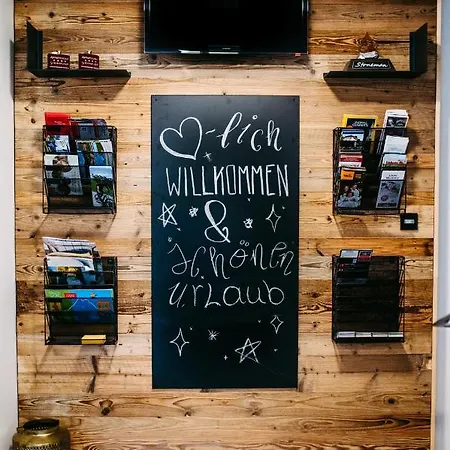 ♡-lich
WILLKOMMEN
&
schönen
urlaub